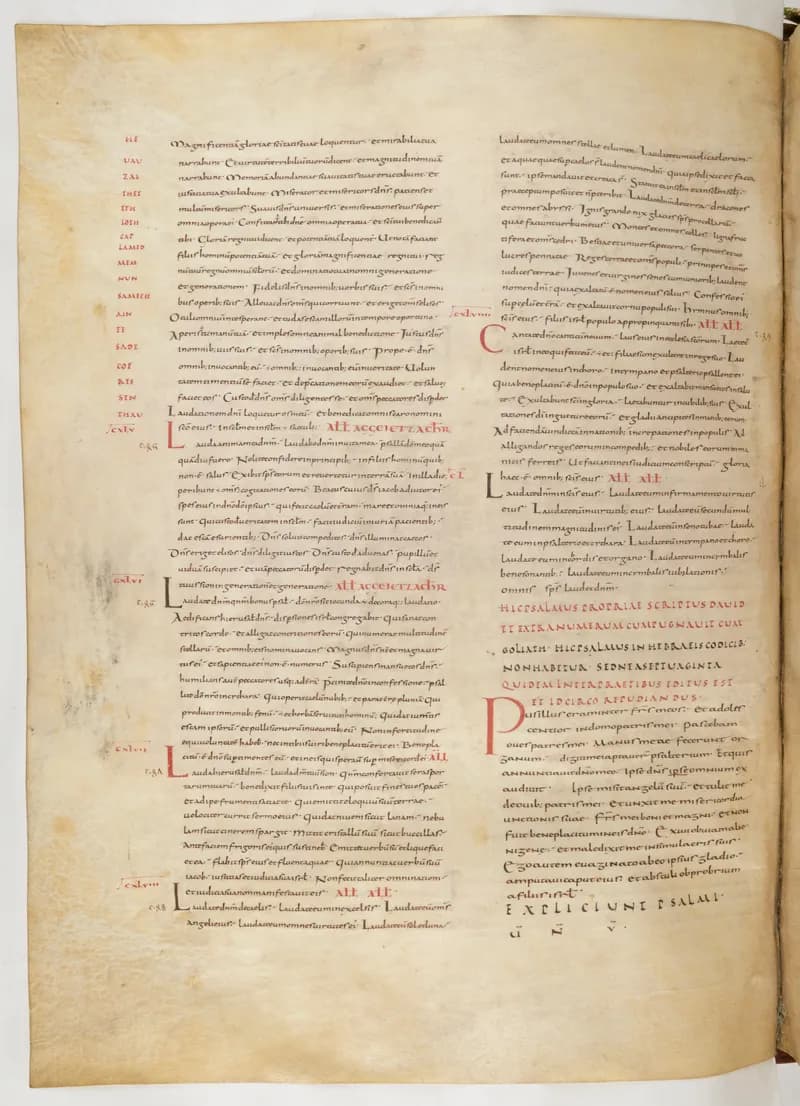 HE
Magnificentiā gloriae scitatis tuae loquentur · et mirabilia tua
UAU
narrabunt · Et uirtutē terribiliū tuorū dicent · et magnitudinē tuā
ZAI
narrabunt · Memoriā abundantiae suauitatis tuae eructabunt · Et
iustitia tua exultabunt · Miserator et misericors dns̄ · patiens et
multū misericors · Suauis dns̄ uniuersis · et miserationes eius super
IOTH
omnia opera ei · Confiteantur tibi dnē omnia opera tua · et sc̄i tui benedicant
CAF
tibi · Gloriā regni tui dicent · et potentiā tuā loquent · Ut notā faciant
LAMED
filiis hominū potentiā tuā · et gloriā magnificentiae regni tui ·
MEM
regnū tuū regnū omniū sc̄lorū · et dominatio tua in omni generatione
NUN
et generationem · Fidelis dns̄ in omnib; uerbis suis · et sc̄s in omni
SAMECH
bus operib; suis · Alleuat dns̄ om̄s qui corruunt · et erigit om̄s elisos
AIN
Oculi omniū in te sperant · et tu das escā illorū in tempore oportuno ·
FE
Aperis tu manū tuā · et imples omne animal benedictione · Iustus dns̄
SADE
in omnib; uiis suis · et sc̄s in omnib; operib; suis · Prope ē dns̄
COF
omnib; inuocantib; eū · omnib; inuocantib; eū in ueritate · Uolun
RES
tatem timentiū se faciet · et depicationē eorū exaudiet · et saluos
SIN
faciet eos · Custodit dns̄ om̄s diligentes se · et om̄s peccatores disper
THAU
Laudationem dn̄i loquetur os meū · Et benedicat omnis caro nomini
CXLV
sc̄o eius · In sc̄lm et in sc̄lm sc̄li · ALL AGGEI ET ZACHR
Lauda anima mea dnm̄ · laudabo dnm̄ in uita mea · psallā dō meo qua
quādiu fuero · Nolite confidere in principib; · in filiis hominū quib;
non ē salus · Exibit sp̄s eius et reuertetur in terrā suā · In illa die
peribunt om̄s cogitationes eorū · Beatus cuius ds̄ iacob adiutor ei
spes eius in dnō dō ipsius · qui fecit caelū et terrā · mare et omnia quae in eis
sunt · Qui custodit ueritatem in sc̄lm · facit iudiciū iniuriā patientib; ·
dat escā esurientib; · Dns̄ soluit compeditos · dns̄ illuminat caecos
Dns̄ erigit elisos · dns̄ diligit iustos · Dns̄ custodit aduenas · pupillū et
uiduā suscipiet · et uias peccatorū disperdet · Regnabit dns̄ in sc̄la
CXLVI
tuus sion in generationē et generationē · ALL AGGEI ET ZACHR
Laudate dnm̄ qnm̄ bonus psal · dō nrō sit iocunda decoraq; laudatio
Aedificans hierusalē dns̄ · dispersiones isrl̄ congregabit · Qui sanat con
tritos corde · et alligat contritiones eorū · Qui numerat multitudinē
stellarū · et omnib; eis nomina uocans · Magnus dns̄ nr̄ et magna uir
tus ei · et sapientiae ei non ē numerus · Suscipiens mansuetos dns̄ ·
humilians aut peccatores usq; ad terrā · Praecinite dnō in confessione · psal
lite dō nrō in cithara · Qui operit caelū nubib; · et parat terrae pluuiā · Qui
producit in montib; fenū · et herbā seruituti hominū · Qui dat iumentis
escam ipsorū · et pullis coruorū inuocantib; eū · Non in fortitudine
equi uoluntatē habeb · nec in tibiis uiri beneplacitū erit ei · Benepla
CXLVII
citū ē dnō super timentes eū · et in eis qui sperant sup misericordia ei · ALL
Lauda hierusalē dnm̄ · lauda dm̄ tuū sion · Qnm̄ confortauit seras por
tarum tuarū · benedixit filiis tuis in te · Qui posuit fines tuos pacē
et adipe frumenti satiat te · Qui emittit eloquiū suū terrae ·
uelociter currit sermo eius · Qui dat niuem sicut lanam · nebu
lam sicut cinerem spargit · Mittit cristallū suū sicut buccellas ·
ante faciem frigoris eius quis sustineb · Emittet uerbū suū et liquefaci
et ea · flabit sp̄s eius et fluent aquae · Qui annuntiat uerbū suū
iacob · iustitias et iudicia sua isrl̄ · Non fecit taliter omni nationi
CXLVIII
et iudicia sua non manifestauit eis · ALL ALL ·
Laudate dnm̄ de caelis · laudate eum in excelsis · Laudate eū om̄s
angeli eius · laudate eum omnes uirtutes ei · Laudate eū sol et luna ·
laudate eum omnes stellae et lumen · Laudate eū caeli caelorum ·
et aquae quae super caelos s̄ laudent nomen dn̄i · quia ipse dixit et facta
sunt · ipse mandauit et creata s̄ · Statuit ea in sc̄lm et in sc̄lm sc̄li ·
praeceptum posuit et n̄ praeterib · Laudate dnm̄ de terra · dracones
et omnes abyssi · Ignis grando nix glacies sp̄s procellarū ·
quae faciunt uerbum eius · Montes et omnes colles · ligna fruc
tifera et om̄s cedri · Bestiae et uniuersa pecora · serpentes et uo
lucres pennatae · Reges terrae et om̄s populi · principes et om̄s
iudices terrae · Iuuenes et uirgines senes cum iuniorib; laudent
nomen dn̄i · quia exaltatū ē nomen eius solius · Confessio ei
sup caelū et terrā · et exaltauit cornu populi sui · hymnus omnib;
CXLVIIII
sc̄is eius · filiis isrl̄ populo appropinquanti sib; ALL ALL
Cantate dnō canticū nouum · laus eius in ecclesia sc̄orum · Laetetur
isrl̄ in eo qui fecit eū · et filii sion exultent in rege suo · Lau
dent nomen eius in choro · in tympano et psalterio psallant ei ·
Quia beneplacitū ē dnō in populo suo · et exaltabit mansuetos in salu
te · Exultabunt sc̄i in gloria · laetabuntur in cubilib; suis · Exul
tationes dī in gutture eorū · et gladii ancipites in manib; eorum
Ad faciendā uindictā in nationib; · increpationes in populis · Ad
alligandos reges eorum in compedib; · et nobiles eorum in ma
nicis ferreis · Ut faciant in eis iudicium conscriptū · gloria
CL
haec ē omnib; sc̄is eius · ALL ALL
Laudate dnm̄ in sc̄is eius · Laudate eum in firmamento uirtutis
eius · Laudate eū in uirtutib; eius · Laudate eū secundū mul
titudinem magnitudinis ei · Laudate eū in sono tubae · lauda
te eum in psalterio et cithara · Laudate eum in tympano et choro ·
laudate eum in chordis et organo · Laudate eum in cymbalis
benesonantib; · laudate eum in cymbalis iubilationis ·
omnis sp̄s laudet dnm̄ ·
HIC PSALMUS PROPRIAE SCRIPTUS DAUID
ET EXTRA NUMERUM CUM PUGNAUIT CUM
GOLIATH · HIC PSALMUS IN HEBRAEIS CODICIB;
NON HABETUR · SED NE A SEPTUAGINTA
QUIDEM INTERPRAETIBUS EDITUS EST
ET IDCIRCO REPUDIANDUS ·
Pusillus eram inter fr̄s meos · Et adoles
centior in domo patris mei · Pascebam
oues patris mei · Manus meae fecerunt or
ganum · digiti mei aptauer̄ psalterium · Et quis
annuntiauit dnō meo · Ipse dns̄ ipse omnium ex
audiuit · Ipse misit angelū suū · et tulit me
de ouib; patris mei · Et unxit me misericordia
unctionis suae · Fr̄s mei boni et magni · et non
fuit beneplacitum in eis dnō · Exiui obuiam alie
nigenae · et maledixit me in simulacris suis ·
Ego autem euaginato ab eo ipsius gladio
amputaui caput eius · et abstuli obprobrium
a filiis isrl̄ ·
EXPLICIUNT PSALMI ·